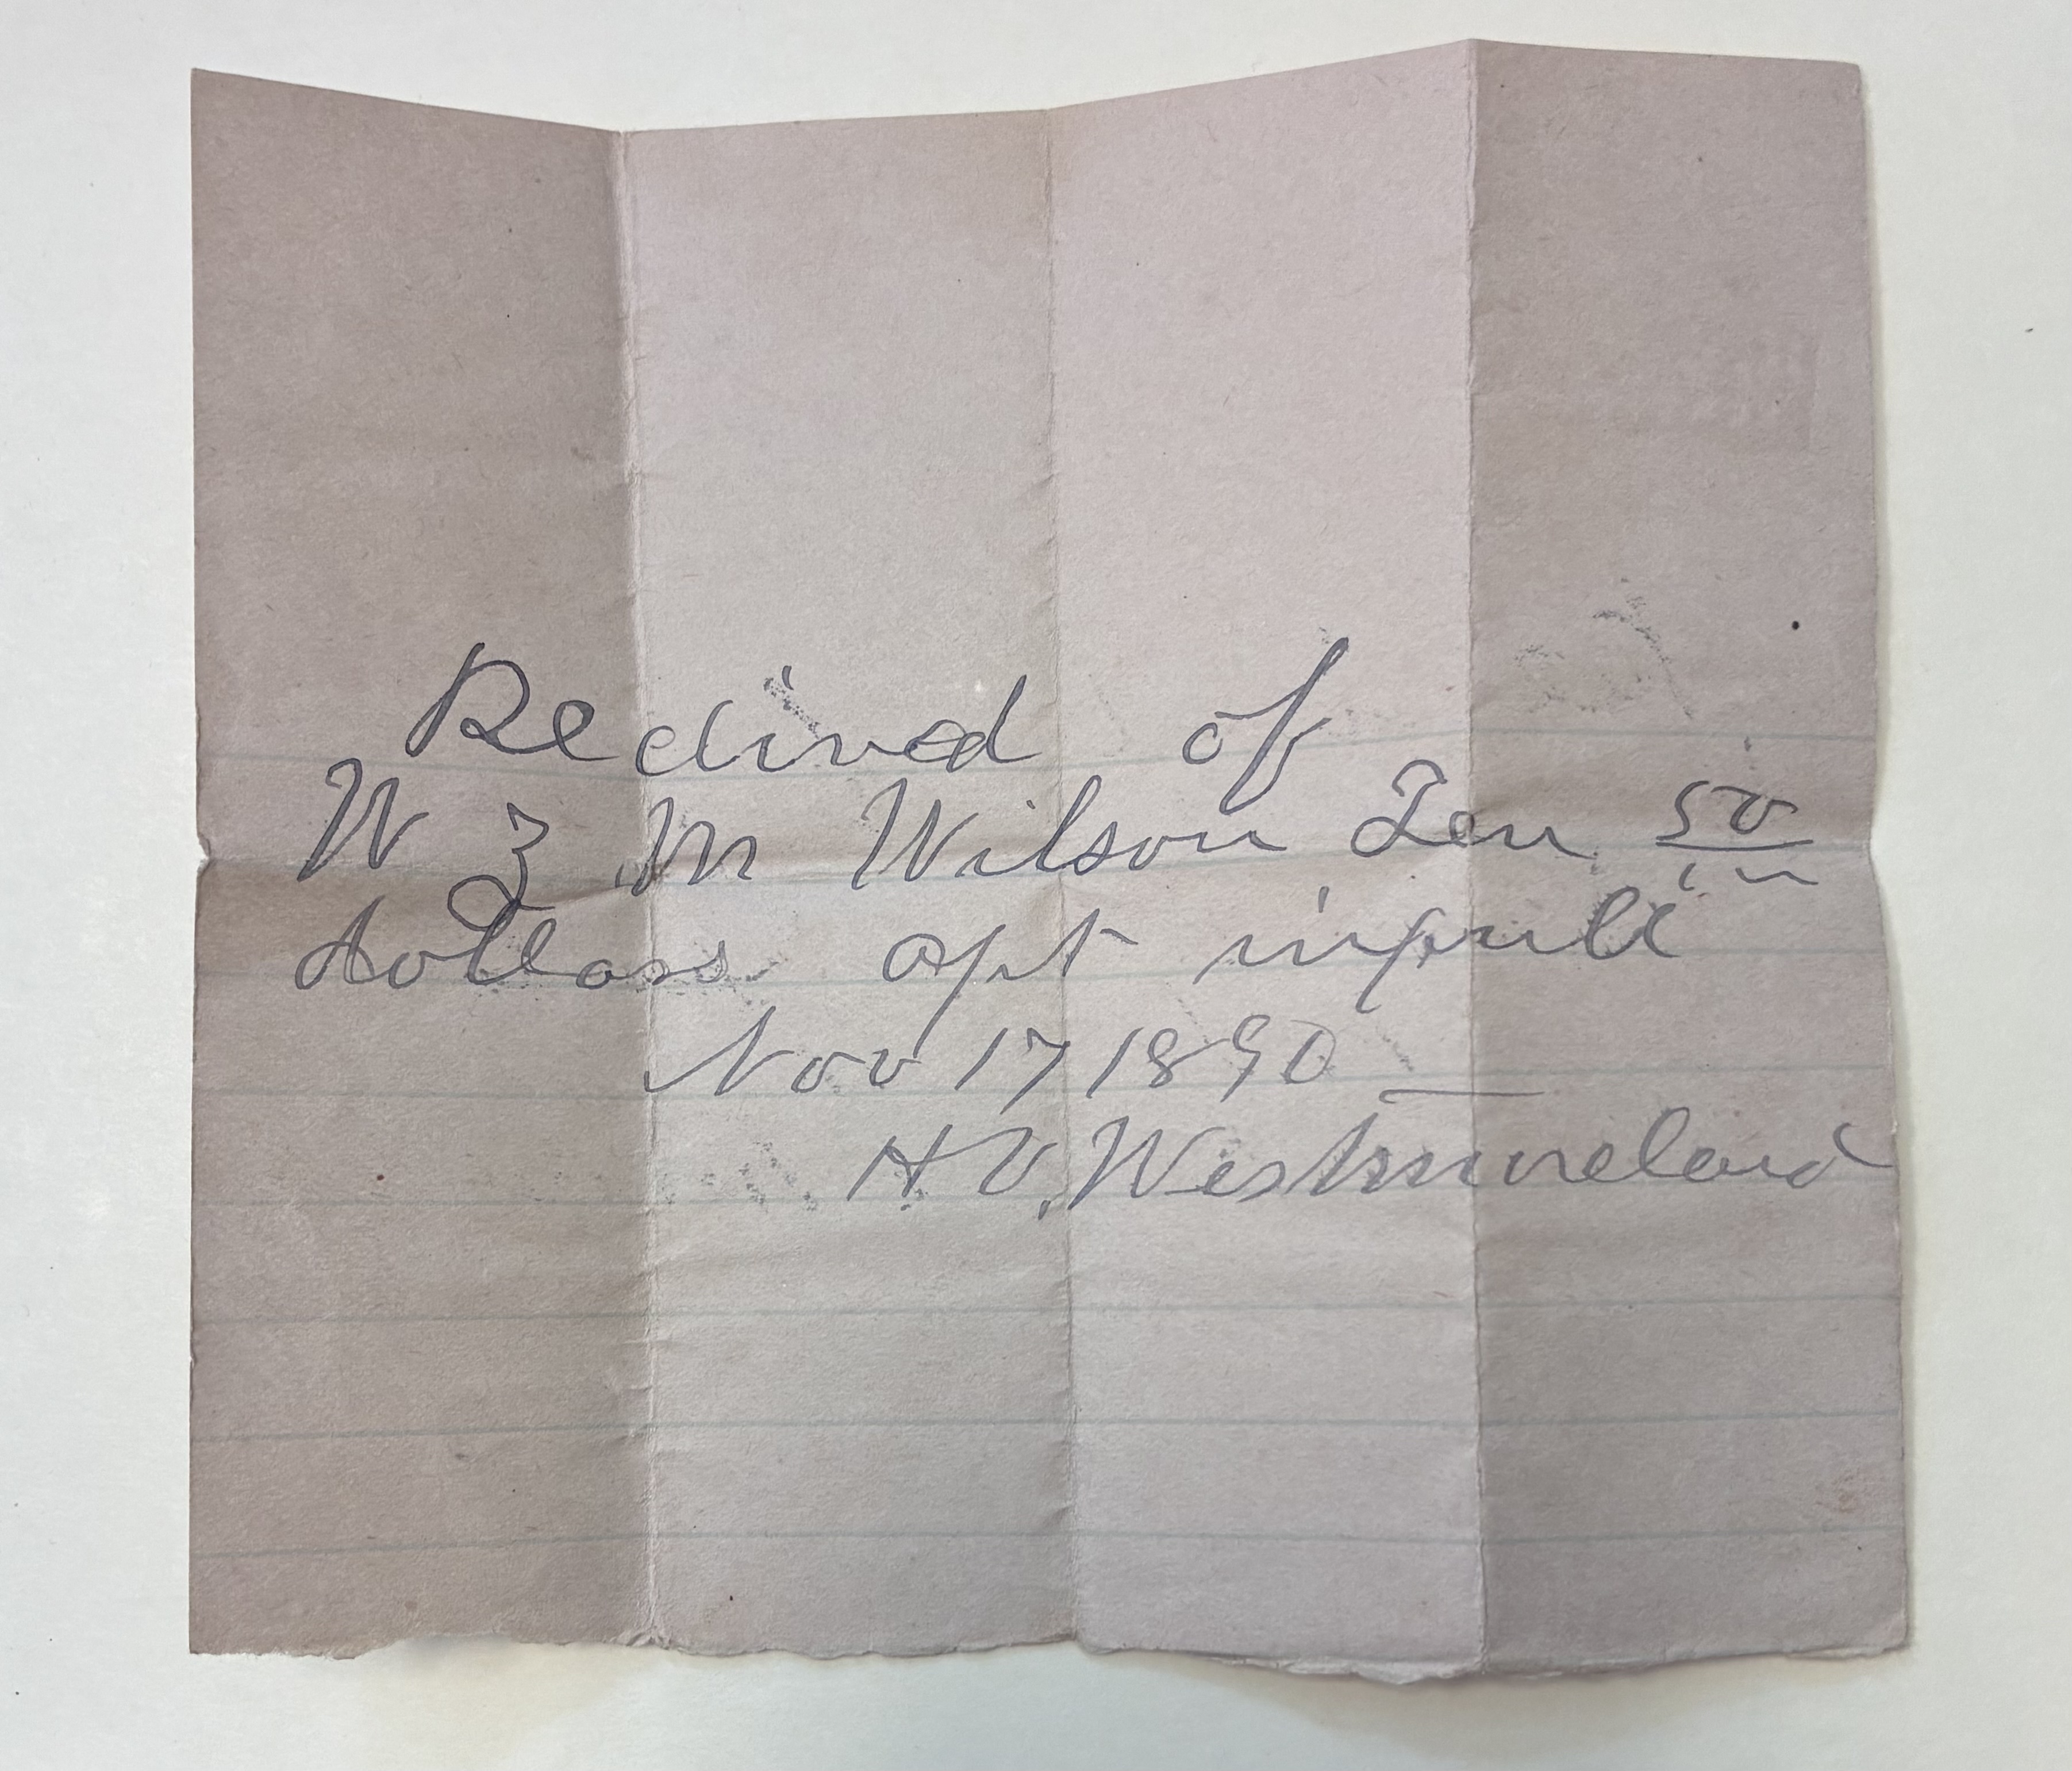 Recived of
W Z M Wilson Ten 50/100
dollars apt infull
Nov 17 1890
H V. Westmoreland